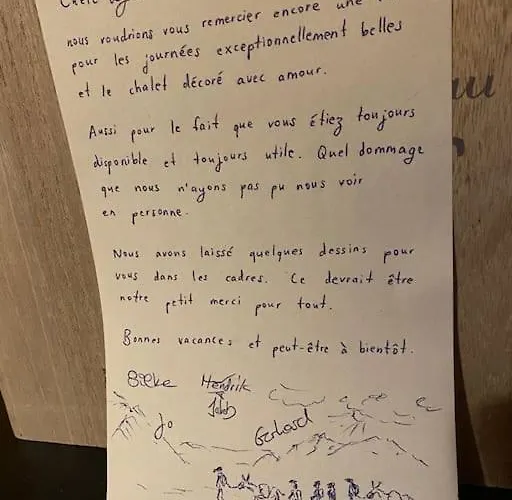 nous voudrions vous remercier encore une
pour les journées exceptionnellement belles
et le chalet décoré avec amour.
Aussi pour le fait que vous étiez toujours
disponible et toujours utile. Quel dommage
que nous n'ayons pas pu nous voir
en personne.
Nous avons laissé quelques dessins pour
vous dans les cadres. Ce devrait être
notre petit merci pour tout.
Bonnes vacances et peut-être à bientôt.
Hendrik
Jo
Gerhard